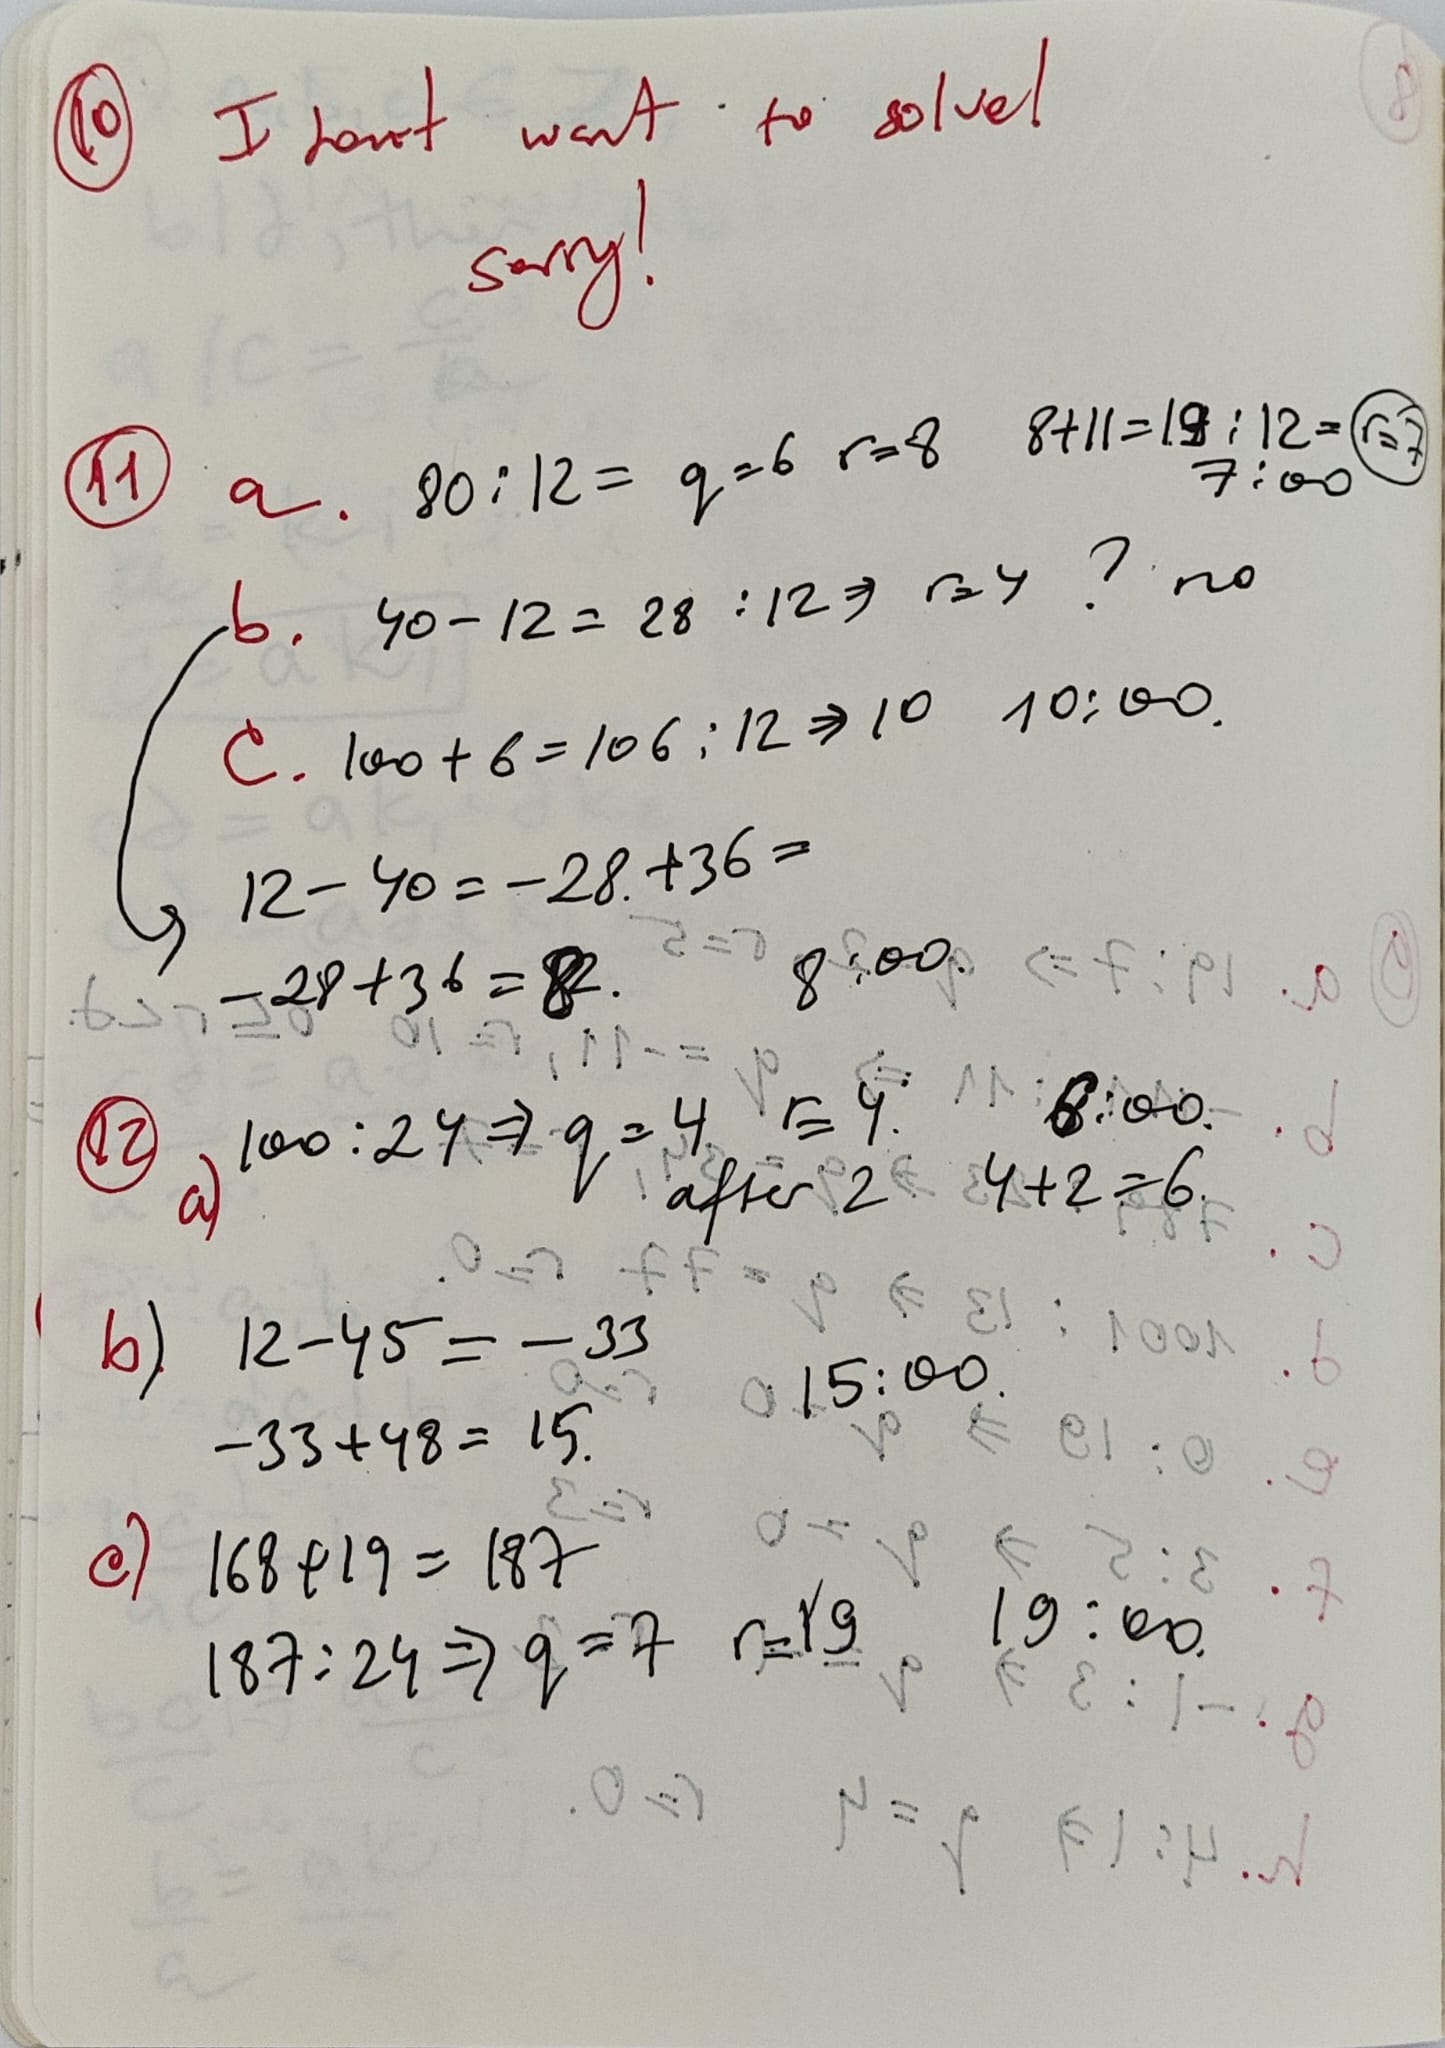 10 I don't want to solve!
sorry!
11 a. 80:12= q=6 r=8 8+11=19:12= r=7
7:00
b. 40-12=28:12⇒ r=4 ? no
C. 100+6=106:12⇒10 10:00.
12-40=-28.+36=
-28+36=8. 8:00.
12 a) 100:24⇒q=4 r=4. 6:00.
after 2 4+2=6.
b) 12-45=-33
15:00.
-33+48=15.
c) 168+19=187
187:24⇒q=7 r=19 19:00.